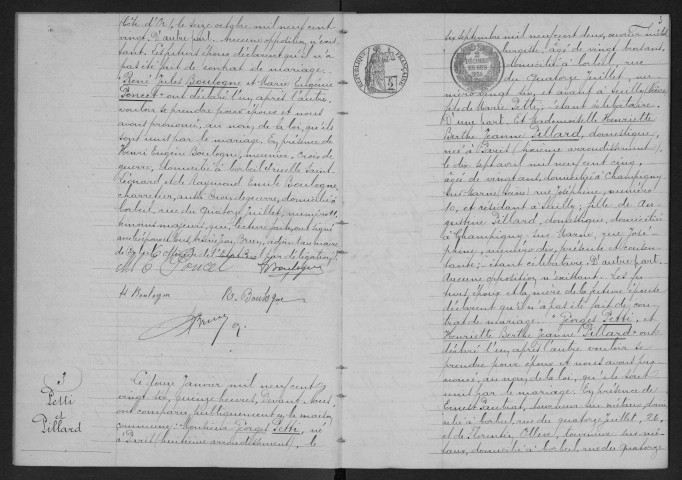 Côte d'Or, le seize octobre mil neuf cent
vingt. D'autre part. Aucune opposition n'exis-
tant. Les futurs époux déclarent qu'il n'a
pas été fait de contrat de mariage.
René Jules Boulogne et Marie Eugénie
Poncet ont déclaré l'un après l'autre
vouloir se prendre pour époux et nous
avons prononcé, au nom de la loi, qu'ils
sont unis par le mariage. En présence de
Henri Eugène Boulogne, meunier, croix de
guerre, domicilié à Corbeil, ruelle Saint
Léonard et de Raymond Emile Boulogne,
charretier, croix de guerre, domicilié à
Corbeil, rue du Quatorze Juillet, numéro 11,
témoins majeurs, qui, lecture faite, ont signé
avec les époux et nous, Bruey, adjoint au maire
par délégation
Poncet
Boulogne
H Boulogne
R. Boulogne
Bruey
3
Petti
et
Pillard
Le douze Janvier mil neuf cent
vingt six, quinze heures, devant nous
ont comparu publiquement en la maison
commune: Monsieur Georges Petti, né
à Paris (huitième arrondissement), le
RÉPUBLIQUE FRANÇAISE
3
six septembre mil neuf cent deux, ouvrier
âgé de vingt trois ans,
domicilié à Corbeil, rue
du Quatorze Juillet, nu-
méro vingt six, et avant à
fils de Marie Petti, étant célibataire.
D'une part. Et Mademoiselle Henriette
Berthe Jeanne Pillard, domestique,
née à Paris (arrondissement),
le dix sept avril mil neuf cent cinq,
âgée de vingt ans, domiciliée à Champigny
sur Marne (Seine) rue Joséphine, numéro
10, et résidant à; fille de Au-
gustine Pillard, domestique, domiciliée
à Champigny sur Marne, rue José-
phine, numéro dix, présente et consen-
tante; étant célibataire. D'autre part.
Aucune opposition n'existant. Les fu-
turs époux et la mère de la future épouse
déclarent qu'il n'a pas été fait de con-
trat de mariage. Georges Petti et
Henriette Berthe Jeanne Pillard ont
déclaré l'un après l'autre vouloir se
prendre pour époux et nous avons pro-
noncé, au nom de la loi, qu'ils sont
unis par le mariage. En présence de
Ernest, tourneur sur métaux, domi-
cilié à Corbeil, rue du quatorze juillet, 26,
et de Florentin, tourneur sur mé-
taux, domicilié à Corbeil, rue du Quatorze